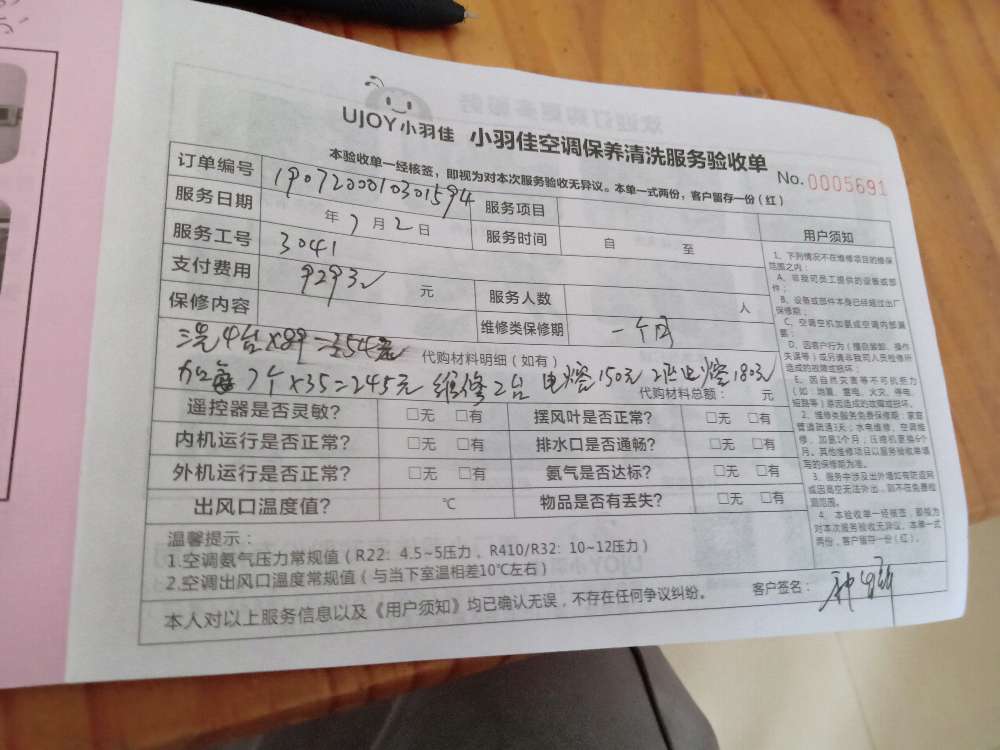 UJOY小羽佳 小羽佳空调保养清洗服务验收单
No.0005691
本验收单一经核签，即视为对本次服务验收无异议。本单一式两份，客户留存一份（红）
订单编号 1907200010301594 服务项目
服务日期 年 7 月 2 日 服务时间 自 至
服务工号 3041
支付费用 元 服务人数 人
保修内容 维修类保修期 一个月
洗4台×89= 代购材料明细（如有）
7个×35=245元 维修2台 电熔150元 180元
代购材料总额： 元
遥控器是否灵敏？ □无 □有 摆风叶是否正常？ □无 □有
内机运行是否正常？ □无 □有 排水口是否通畅？ □无 □有
外机运行是否正常？ □无 □有 氨气是否达标？ □无 □有
出风口温度值？ ℃ 物品是否有丢失？ □无 □有
温馨提示：
1.空调氨气压力常规值（R22：4.5~5压力，R410/R32：10~12压力）
2.空调出风口温度常规值（与当下室温相差10℃左右）
本人对以上服务信息以及《用户须知》均已确认无误，不存在任何争议纠纷。 客户签名：
用户须知
1、下列情况不在维修项目的维保
范围之内：
A、非我司员工提供的设备或部
件；
B、设备或部件本身已经超过出厂
保修期；
C、空调空机加氨或空调内部漏
氨；
D、因客户行为（擅自装卸、操作
失误等）或另请非我司人员检修所
造成的故障或损坏；
E、因自然灾害等不可抗拒力
（如：地震、雷电、火灾、停电、
短路等）原因造成的故障或损坏。
2、维修类服务免费保修期：家庭
管道疏通3天；水电维修、空调维
修、加氨1个月；压缩机更换6个
月。其他维修项目以服务验收单填
写的保修期为准。
3、服务中涉及出外墙如有防盗网
或因高空无法外出，则不在免费检
测范围。
4、本验收单一经核签，即视为
对本次服务验收无异议。本单一式
两份，客户留存一份（红）。